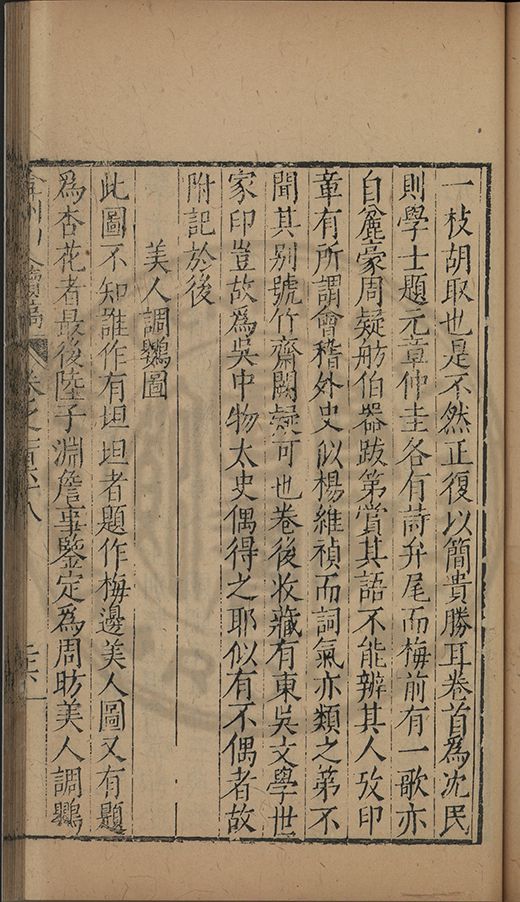 一枝胡取也是不然正復以簡貴勝耳卷首爲沈民
則學士題元章仲圭各有詩弁尾而梅前有一歌亦
自麄豪周疑舫伯器跋第賞其語不能辨其人攷印
章有所謂會稽外史似楊維禎而詞氣亦類之第不
聞其別號竹齋闕疑可也卷後收藏有東吳文學世
家印豈故爲吳中物太史偶得之耶似有不偶者故
附記於後
美人調鸚圖
此圖不知誰作有坦坦者題作梅邊美人圖又有題
爲杏花者最後陸子淵詹事鑒定爲周昉美人調鸚
卷之一百六十八